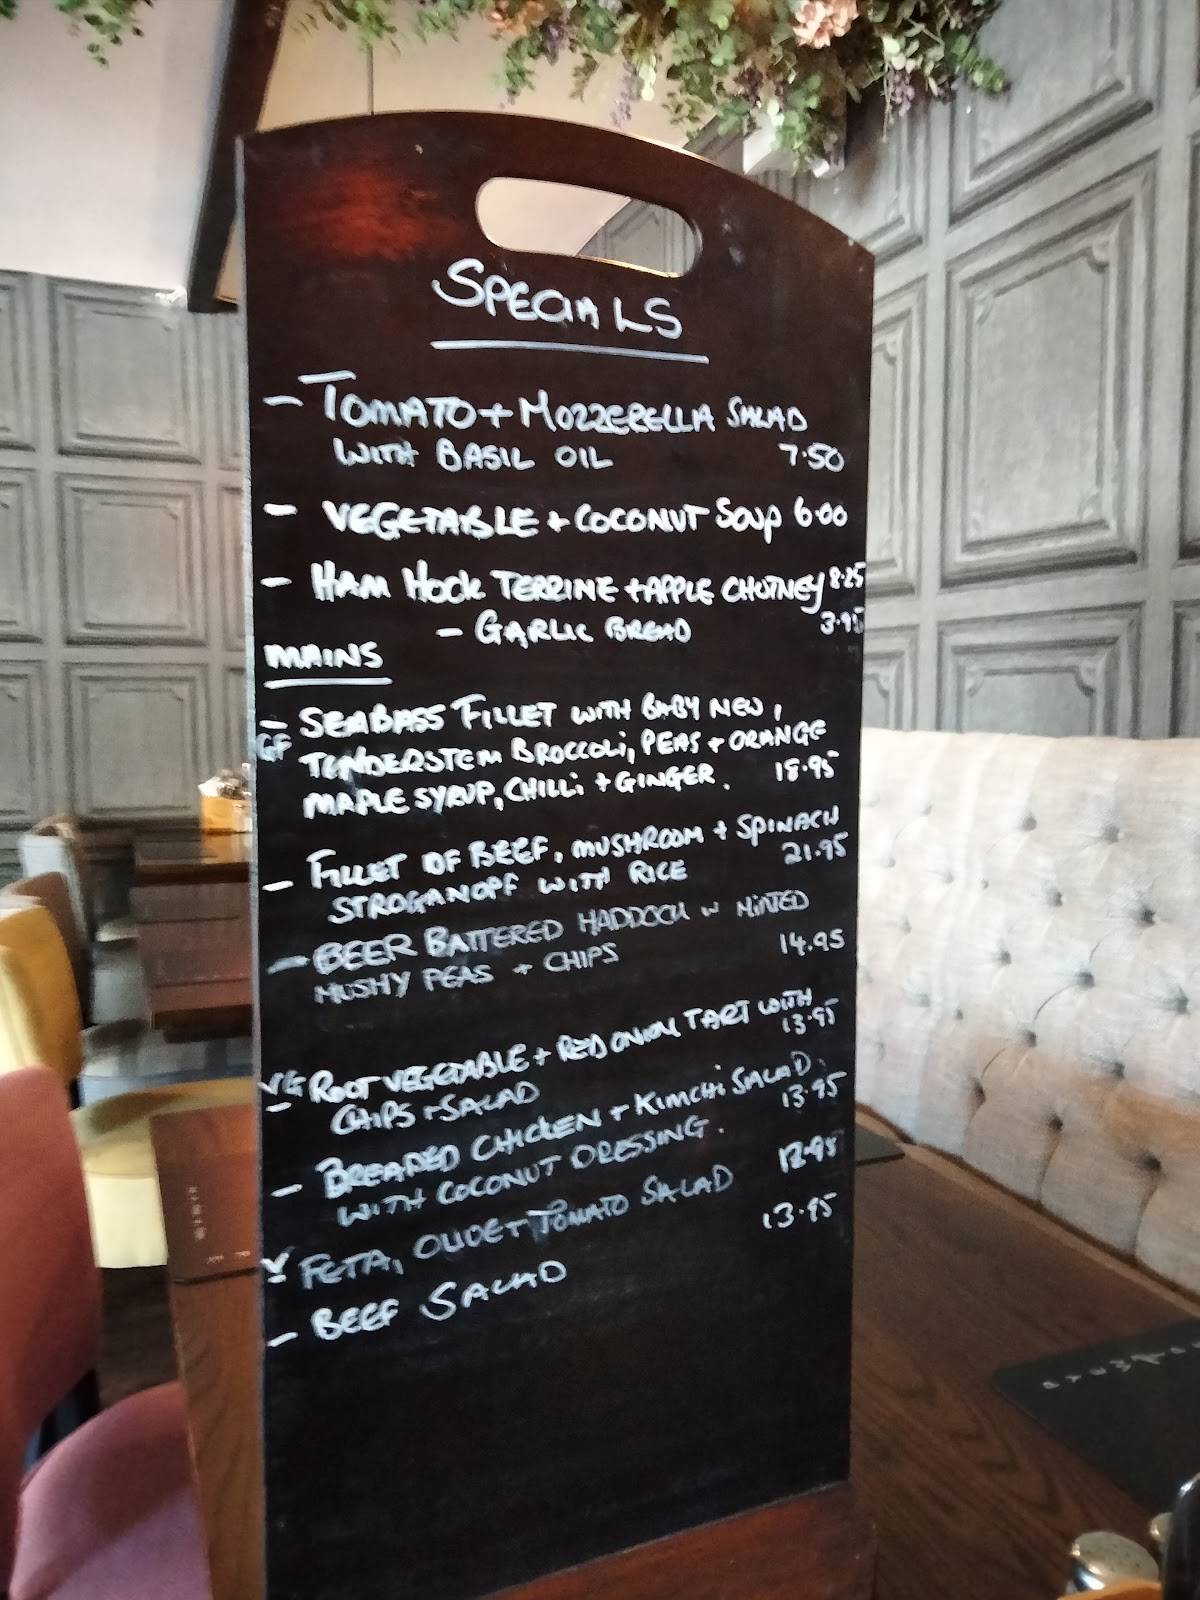 SPECIALS
- TOMATO + MOZZERELLA SALAD
WITH BASIL OIL 7.50
- VEGETABLE + COCONUT SOUP 6.00
- HAM HOCK TERRINE + APPLE CHUTNEY 8.25
- GARLIC BREAD 3.95
MAINS
- SEABASS FILLET WITH BABY NEW,
GF TENDERSTEM BROCCOLI, PEAS + ORANGE
MAPLE SYRUP, CHILLI + GINGER. 18.95
- FILLET OF BEEF, MUSHROOM + SPINACH
STROGANOFF WITH RICE 21.95
- BEER BATTERED HADDOCK W MINTED
MUSHY PEAS + CHIPS 14.95
VG - ROOT VEGETABLE + RED ONION TART WITH
CHIPS + SALAD 13.95
- BREADED CHICKEN + KIMCHI SALAD
WITH COCONUT DRESSING. 13.95
V FETA, OLIVE + TOMATO SALAD 12.95
- BEEF SALAD 13.95